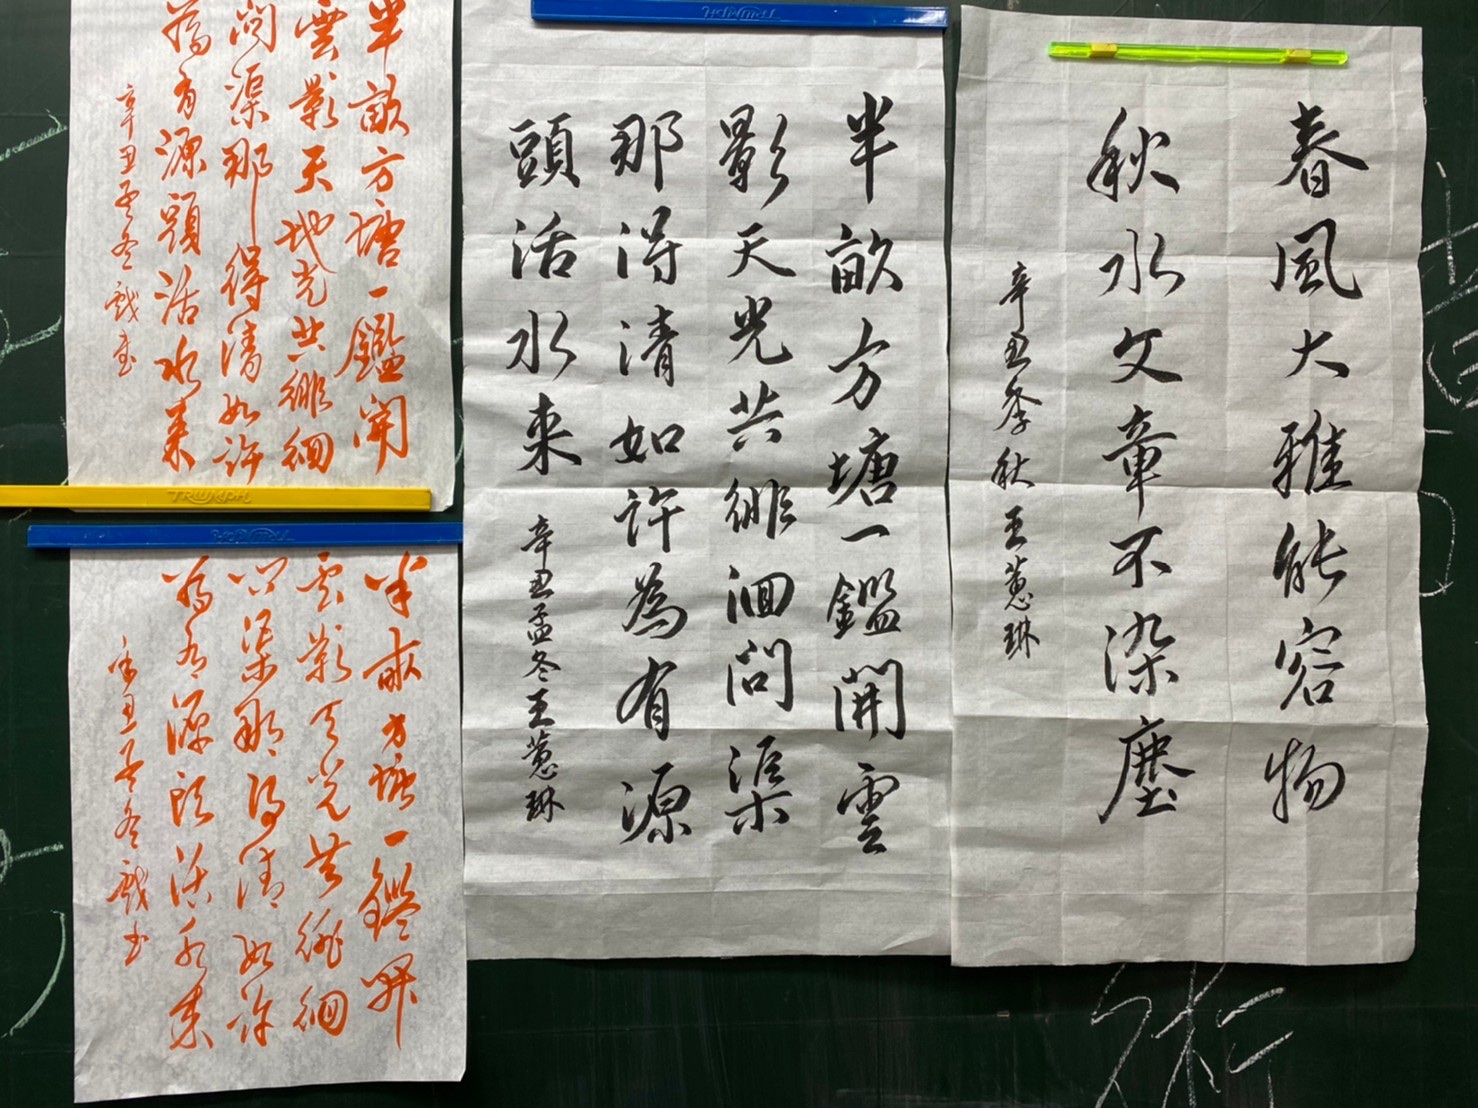 春風大雅能容物
秋水文章不染塵
辛丑季秋王蕙琳
半畝方塘一鑑開雲
影天光共徘徊問渠
那得清如許為有源
頭活水来
辛丑孟冬王蕙琳
半畝方塘一鑑開
雲影天地光共徘徊
問渠那得清如許
為有源頭活水来
辛丑孟冬戲書
TRIUMPH
半畝方塘一鑑開
雲影天光共徘徊
問渠那得清如許
為有源頭活水来
辛丑孟冬戲書
術